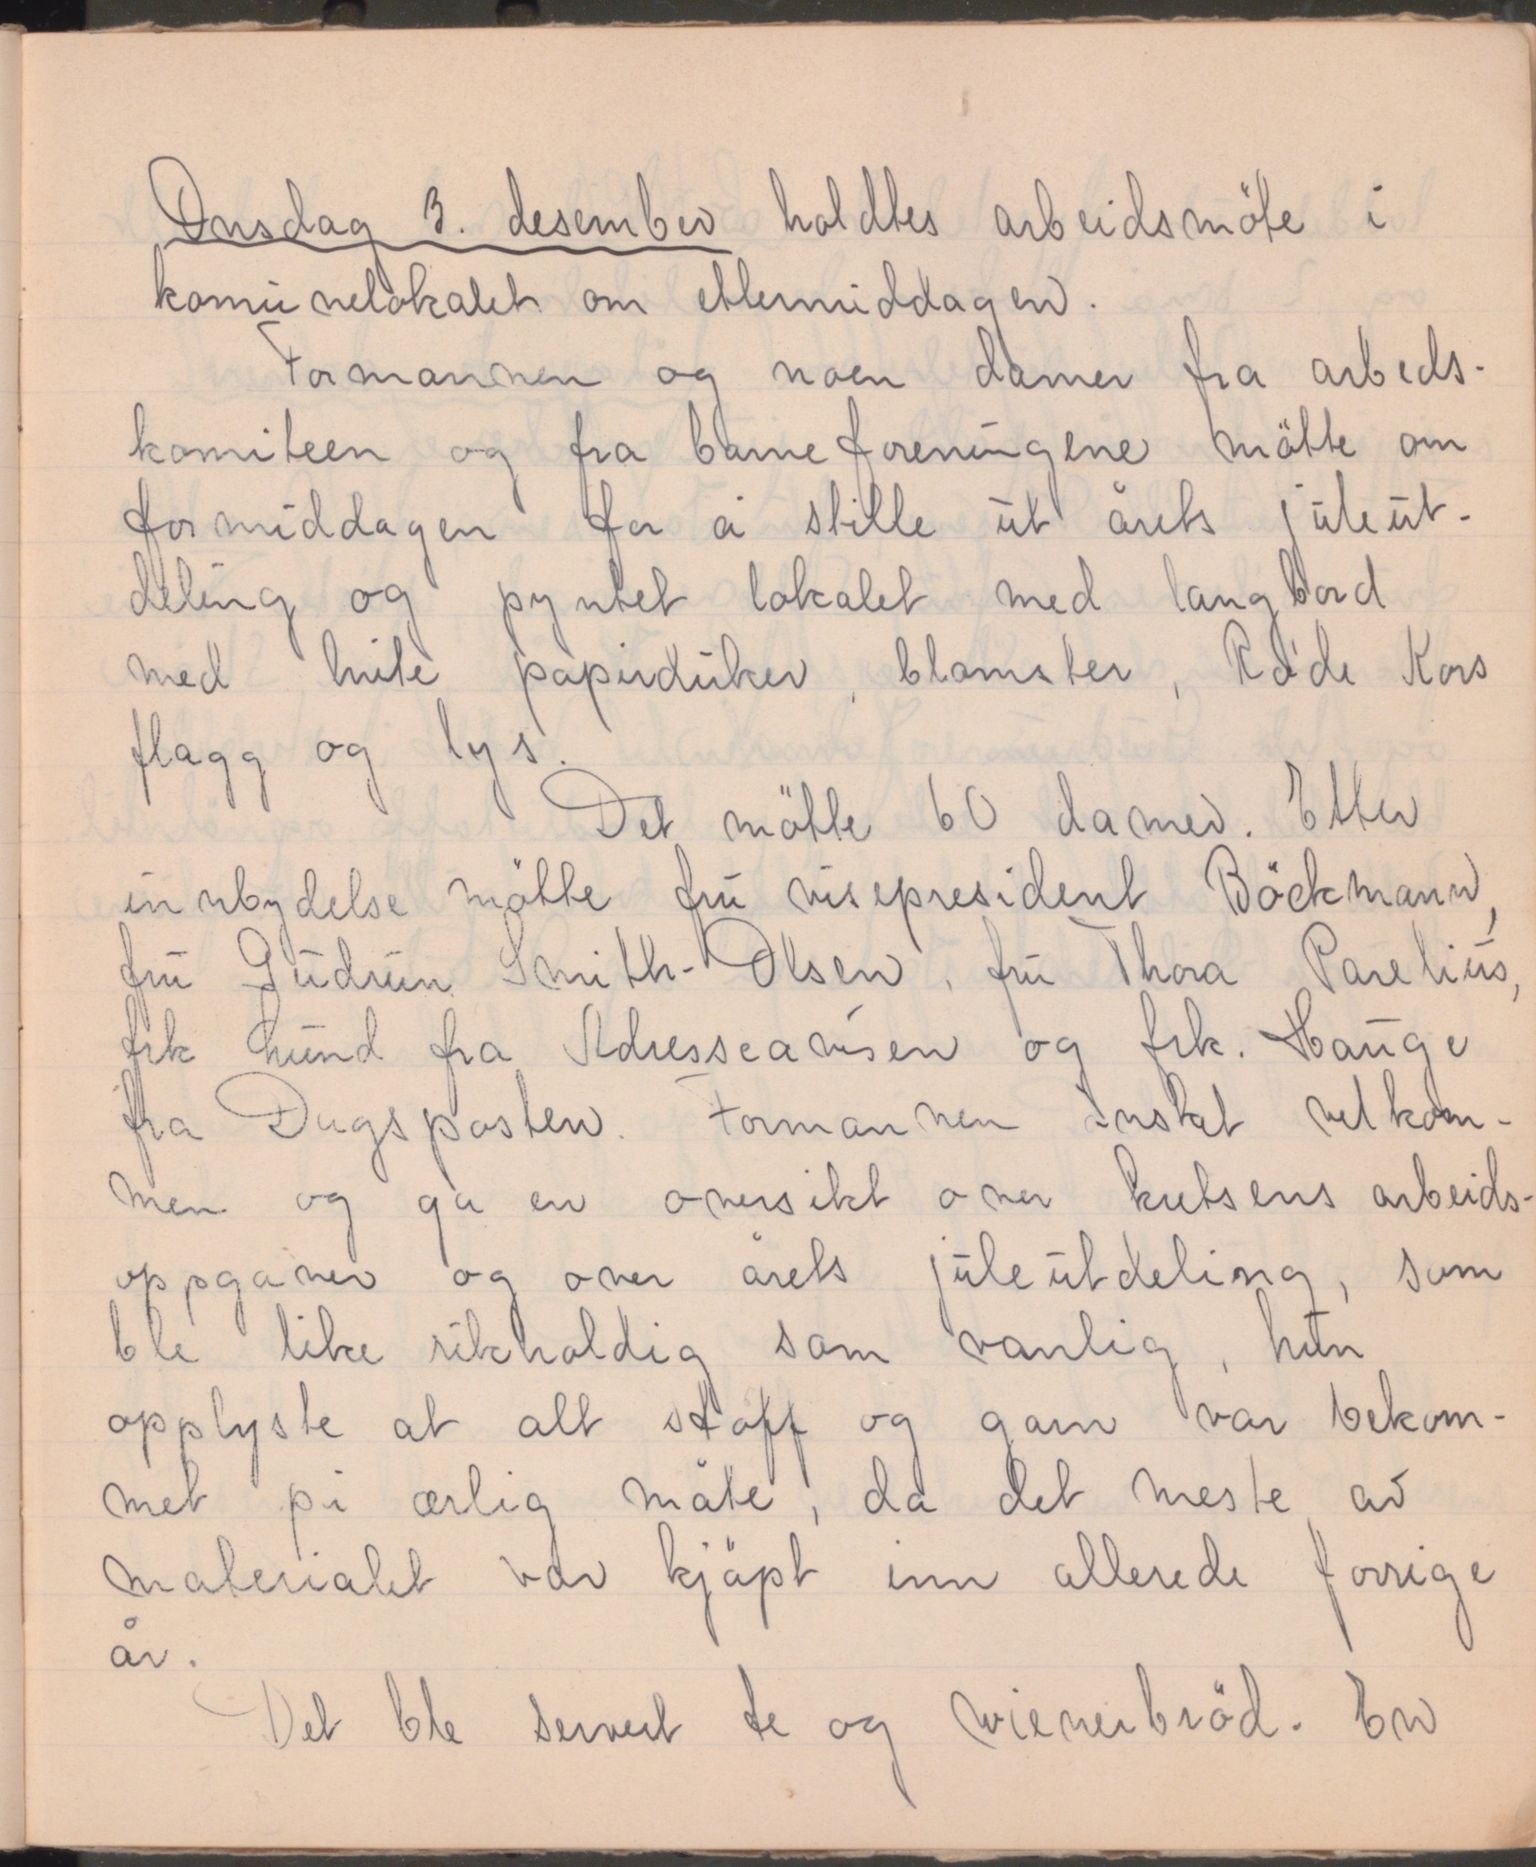 Onsdag 3. desember holdtes arbeidsmöte i
komunelokalet om ettermiddagen.
Formannen og noen damer fra arbeds-
komiteen og fra barneforeningene mötte om
formiddagen for å stille ut årets juleut-
deling og pyntet lokalet med langbord
med hvite papirduker, blomster, Röde Kors
flagg og lys.
Det mötte 60 damer. Etter
innbydelse mötte fru visepresident Böckmann,
fru Gudrun Smith-Olsen, fru Thora Parelius,
frk Lund fra Adresseavisen og frk. Hauge
fra Dagsposten. Formannen önsket velkom-
men og ga en oversikt over kretsens arbeids-
oppgaver og over årets juleutdeling, som
ble like rikholdig som vanlig, hun
opplyste at alt stoff og garn var bekom-
met på ærlig måte, da det meste av
materialet var kjöpt inn allerede forrige
år.
Det ble servert te og wienerbröd. En